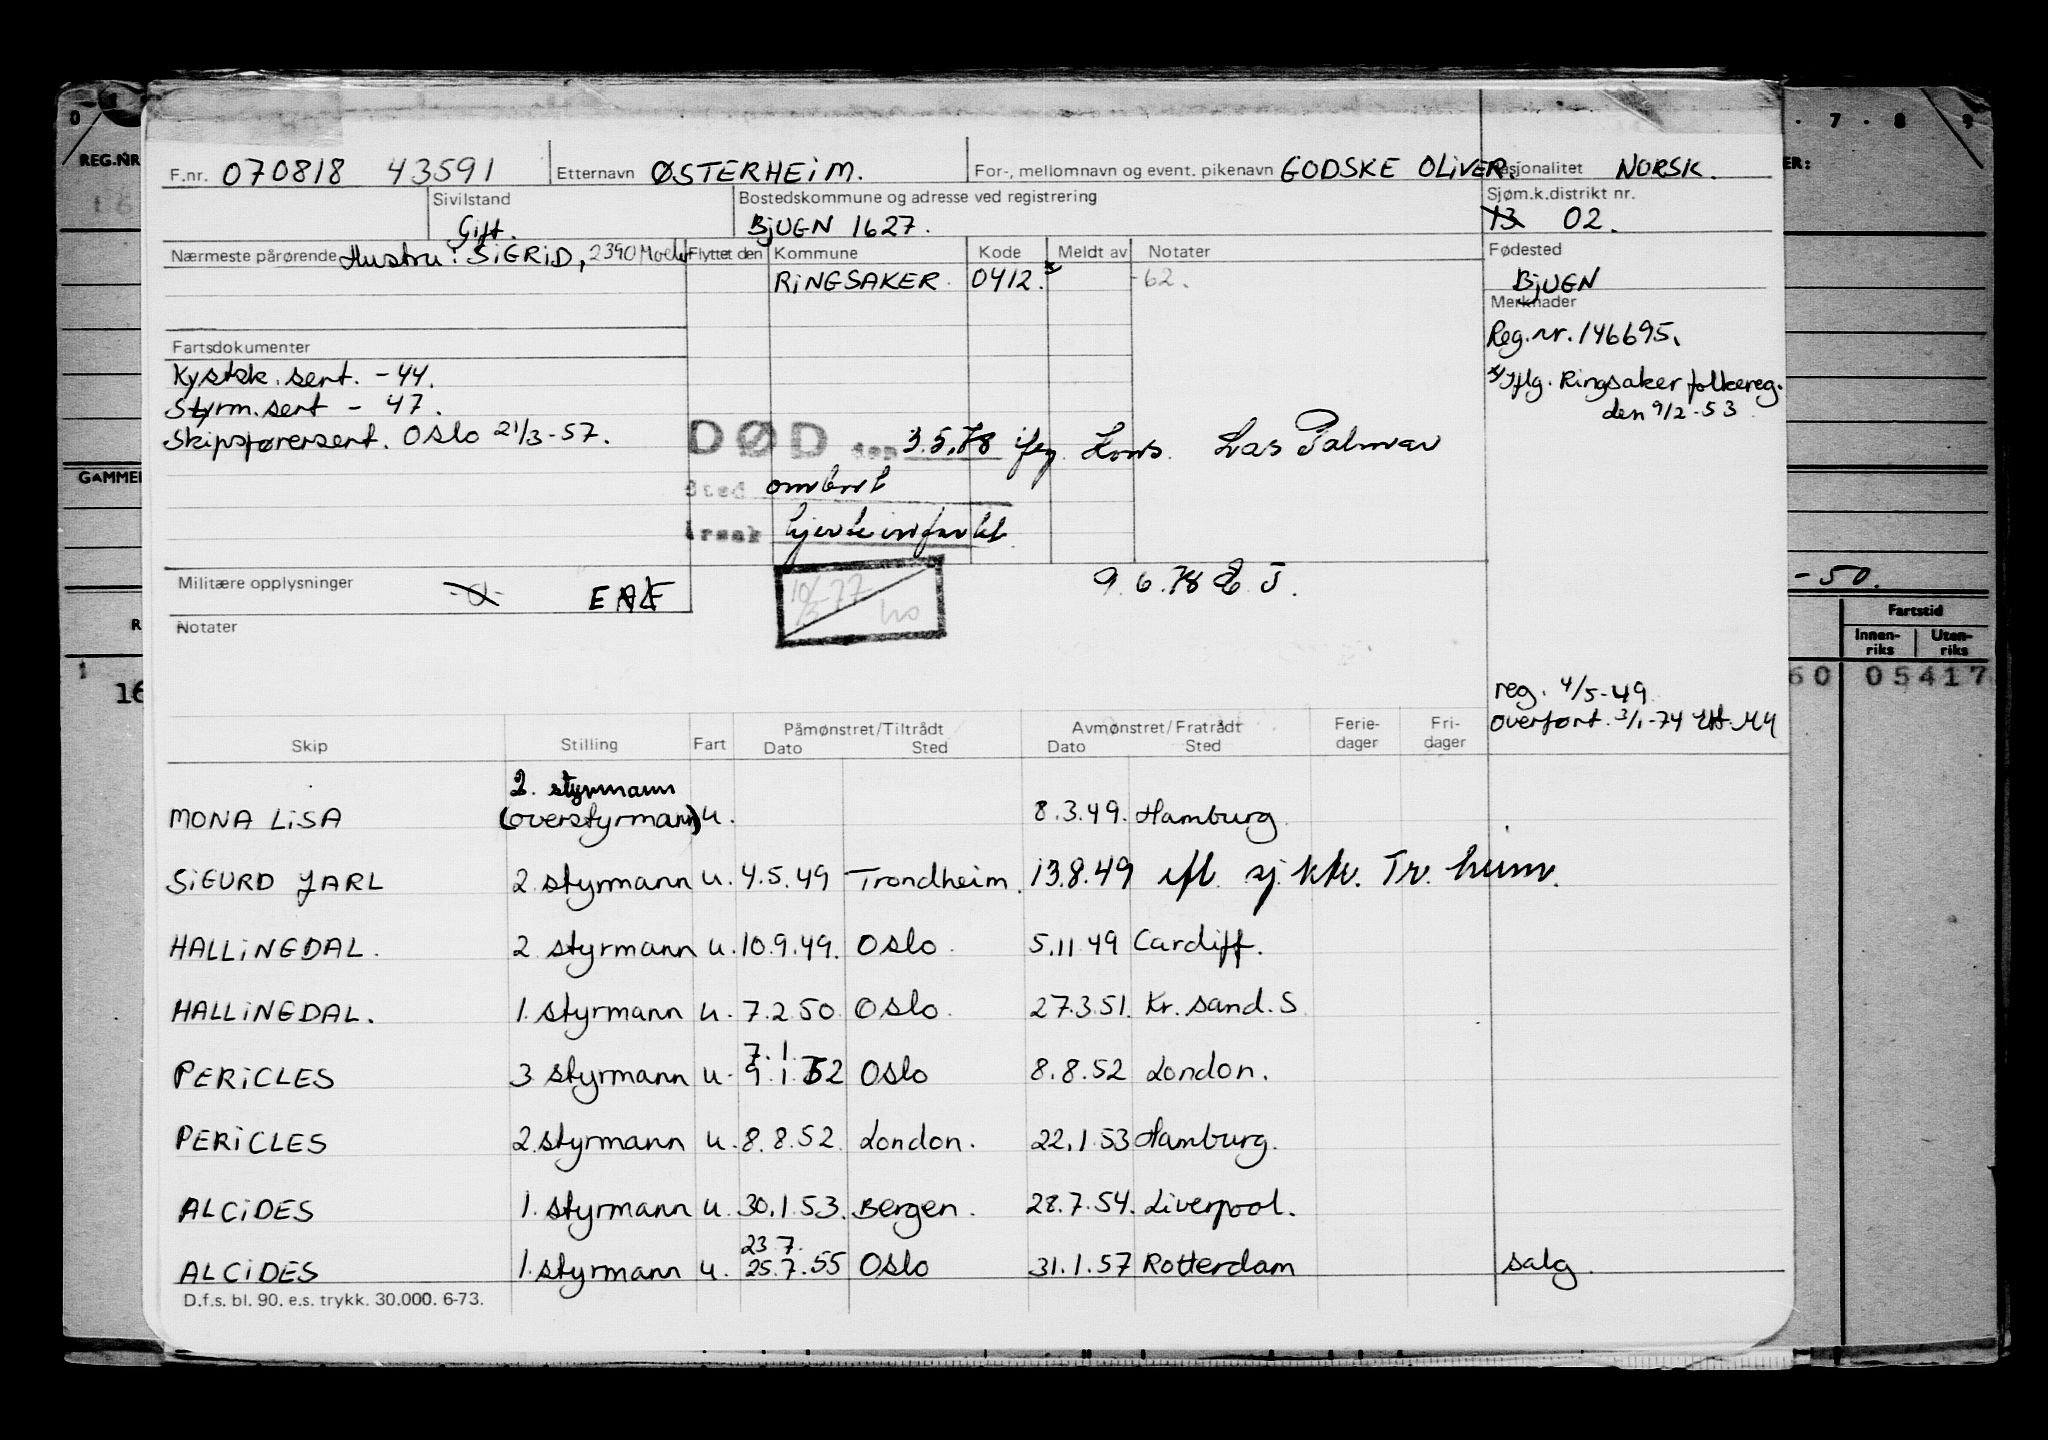 F.nr. 070818 43591 Etternavn ØSTERHEIM. For-, mellomnavn og event. pikenavn GODSKE OLIVER. Nasjonalitet NORSK.
Sivilstand Gift. Bostedskommune og adresse ved registrering BJUGN 1627. Sjøm.k.distrikt nr. 13 02.
Nærmeste pårørende Hustru: SIGRID, 2390 Moelv Flyttet den Kommune Kode Meldt av Notater Fødested
RINGSAKER 0412.x -62. BJUGN
Merknader
Reg.nr. 146695.
Fartsdokumenter
Kystsk. sert. -44. x/ Iflg. Ringsaker folkereg.
Styrm. sert - 47. den 9/2-53
Skipsførersert. Oslo 21/3-57.
DØD den 3.5.78 iføg. Kons. Las Palmas
Sted ombord
Årsak hjerteinfarkt
Militære opplysninger -0- 10/5-77 9.6.78
Notater
reg. 4/5-49
overført. 3/1-74
Skip Stilling Fart Påmønstret/Tiltrådt Dato Sted Avmønstret/Fratrådt Dato Sted Ferie-dager Fri-dager
2. styrmann
MONA LISA (overstyrmann) u. 8.3.49. Hamburg
SIGURD JARL 2 styrmann u. 4.5.49 Trondheim. 13.8.49 ifl. sj.ktr. Tr.heim.
HALLINGDAL. 2 styrmann u. 10.9.49. Oslo. 5.11.49 Cardiff.
HALLINGDAL. 1. styrmann u. 7.2.50 Oslo. 27.3.51. Kr.sand.S
7.1.
PERICLES 3 styrmann u. 9.1.52 Oslo 8.8.52 London.
PERICLES 2. styrmann u. 8.8.52. London. 22.1.53 Hamburg.
ALCIDES 1. styrmann u. 30.1.53. Bergen. 28.7.54. Liverpool.
23.7.
ALCIDES 1. styrmann u. 25.7.55 Oslo 31.1.57 Rotterdam salg.
D.f.s. bl. 90. e.s. trykk. 30.000. 6-73.
REG.NR
GAMMEL
7 · 8 9
-50.
Fartstid
Innen-riks Uten-riks
60 05417